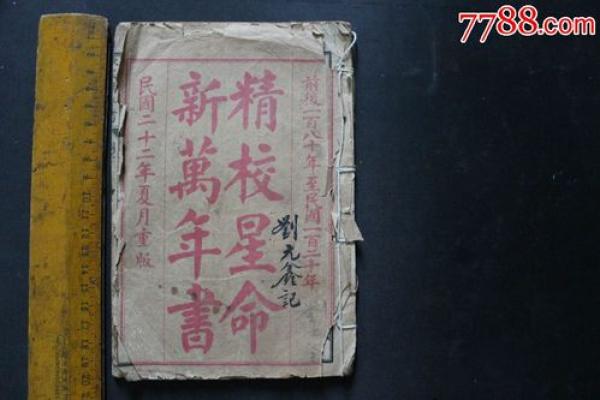 7788.com
前後一百八十年至民國一百二十年
精校星命
新萬年書
民國二十二年夏月重版
劉九鑫記